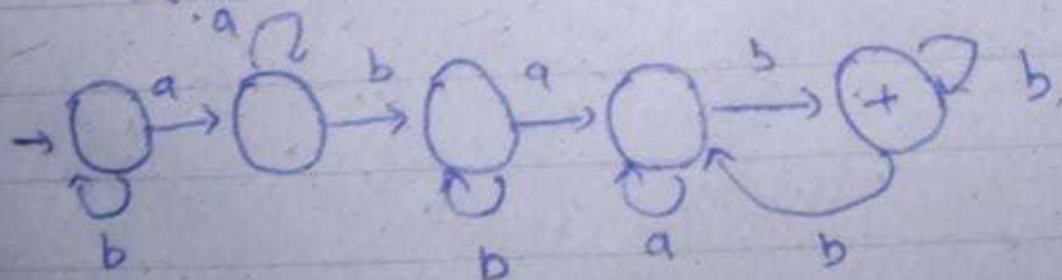 a
a b a b b
+
b b a b